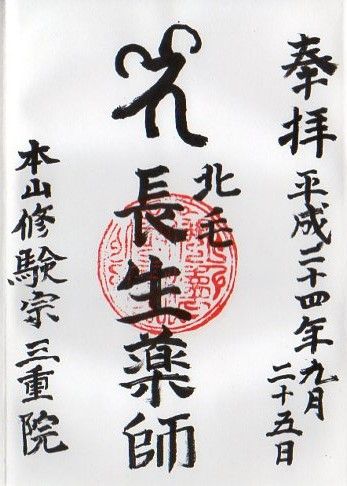 奉拝 平成二十四年九月
二十五日
北毛
長生薬師
本山修験宗三重院